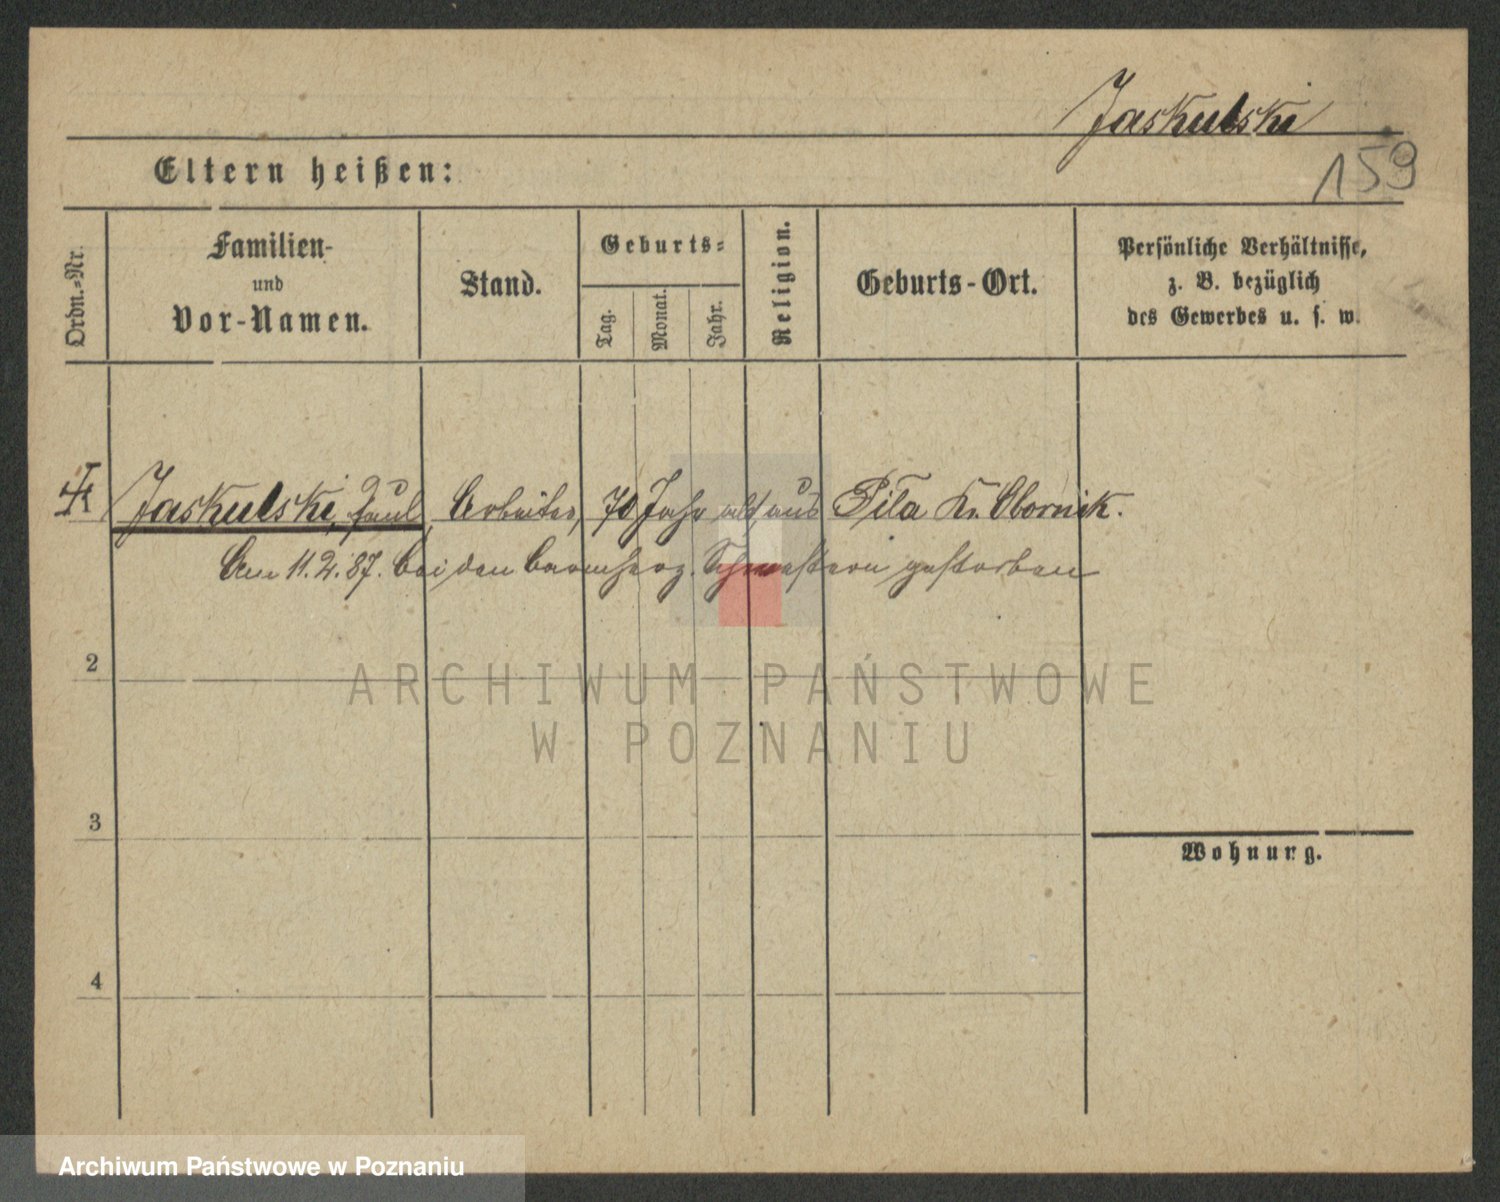 Jaskulski
159
Eltern heißen:
Ordn.-Nr.
Familien-
und
Vor-Namen.
Stand.
Geburts-
Tag.
Monat.
Jahr.
Religion.
Geburts-Ort.
Persönliche Verhältnisse,
z. B. bezüglich
des Gewerbes u. s. w.
Jaskulski, Paul, Arbeiter, 70 Jahr alt, aus Pila Kr. Obornik.
Am 11.2.87. bei den barmherz. Schwestern gestorben
2
3
4
Wohnung.
ARCHIWUM PAŃSTWOWE
W POZNANIU
Archiwum Państwowe w Poznaniu